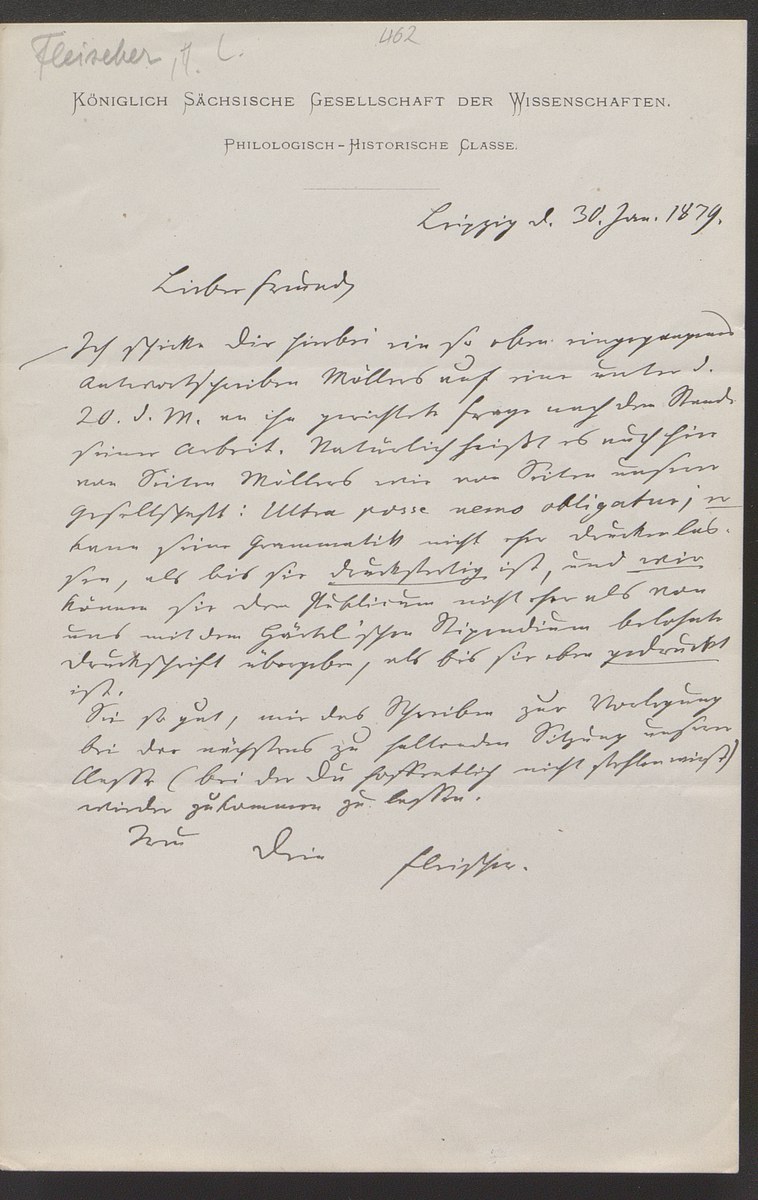 Fleischer, H. L.
462
Königlich Sächsische Gesellschaft der Wissenschaften.
Philologisch-Historische Classe.
Leipzig d. 30. Jan. 1879.
Lieber Freund,
Ich schicke Dir hierbei ein so eben eingegangenes
Antwortschreiben Möllers auf eine unter d.
20. d. M. an ihn gerichtete Frage nach dem Stande
seiner Arbeit. Natürlich heißt es auch hier
von Seiten Möllers wie von Seiten unserer
Gesellschaft: Ultra posse nemo obligatur; er
kann seine Grammatik nicht eher drucken las-
sen, als bis sie druckfertig ist, und wir
können sie dem Publicum nicht eher als von
uns mit dem Härtel'schen Stipendium belohnte
Druckschrift übergeben, als bis sie eben gedruckt
ist.
Sei so gut, mir das Schreiben zur Vorlegung
bei der nächstens zu haltenden Sitzung unserer
Classe (bei der Du hoffentlich nicht fehlen wirst)
wieder zukommen zu lassen.
Treu
Dein
Fleischer.